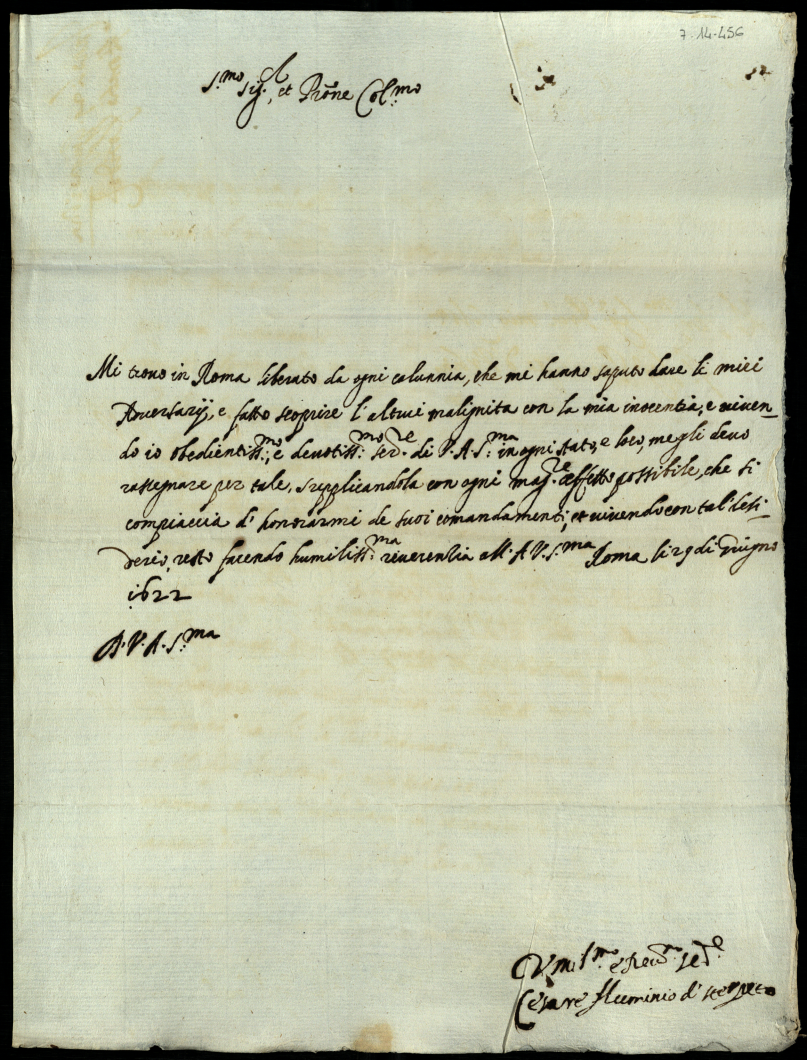 7.14-456
S.mo Sig.r, et Prone Col.mo
Mi trovo in Roma liberato da ogni calunnia, che mi hanno saputo dare li miei
Adversarij, e fatto scoprire l'altrui malignita con la mia inocentia, e viven-
do io obedientiss.mo, e devotiss.mo ser.re di V.A.S.ma in ogni stato, e loco, me gli devo
rassegnare per tale, supplicandola con ogni mag.re affetto possibile, che si
compiaccia d'honorarmi de suoi comandamenti, et vivendo con tal desi-
derio, resto facendo humiliss.ma reverentia all'A.V.S.ma Roma li 29 di Giugno
1622
D.V.A.S.ma
Cesare fluminio d'sterpeto